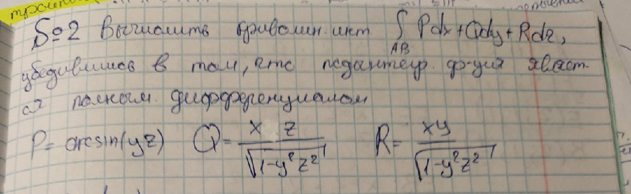 №2 Вычислить криволин. инт ∫ Pdx+Qdy+Rdz,
AB
убедившись в том, что подинтегр. ф-ция явл
ся полным дифференциалом
P= arcsin(yz) Q= x z / √(1-y²z²) R= xy / √(1-y²z²)